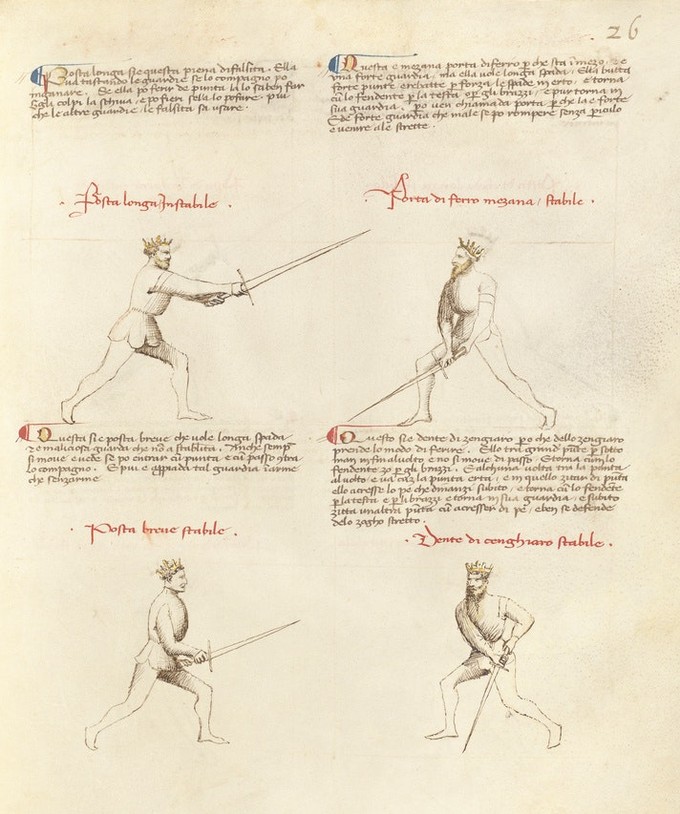 26
Posta longa sie questa piena di falsita. Ella
va tastando le guardie se lo compagno po
inganare. Se ella po ferir de punta la lo sa ben far
gli colpi la schiva, e po fieri se la lo po fare. piu
che le altre guardie, le falsita sa usare.
Posta longa Instabile.
Questa e mezana porta di ferro p che sta i mezo. e
una forte guardia, ma ella vole longa spada. Ella butta
forte punte e rebatte p forza le spade in erto, e torna
cu lo fendente p la testa e p gli brazzi, e pur torna in
sua guardia. Po ven chiamada porta, p che la e forte
E de forte guardia che male se po rompere senza piculo
e venire ale strette.
Porta di ferro mezana, stabile.
Questa sie posta breve che vole longa spada
e maliciosa guarda che no a stabilita. Anche semp
si move e vede se po entrar cu punta e cu passo
lo compagno. E piu e tal guardia i arme
che senz arme
Posta breve stabile.
Questo sie dente di zengiaro p o che dello zengiaro
prende lo modo di ferire. Ello tra grand punte p sotto
man in fin al volto e no si move di passo e torna cu lo
fendente zo p gli brazzi. E alchuna volta tra la punta
al volto e va cu la punta erta, e in quello zitar di puta
ello acresse lo pe che dinanzi subito, e torna cu lo fendente
p la testa e p li brazzi e torna in sua guardia, e subito
zitta un altra puta cu acresser di pe, e ben se defende
delo zogho stretto.
Dente di cenghiaro stabile.